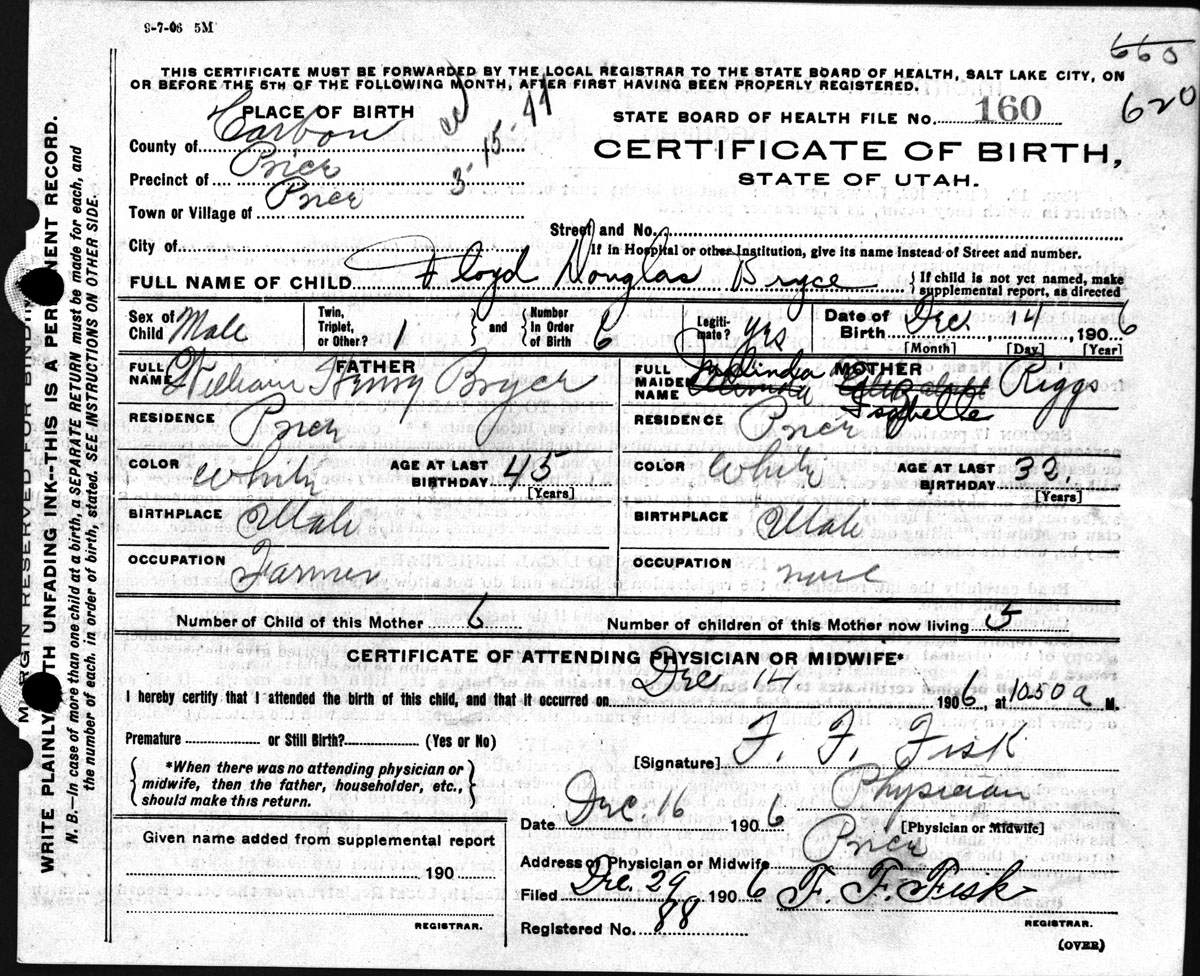 9-7-06 5M
660
620
THIS CERTIFICATE MUST BE FORWARDED BY THE LOCAL REGISTRAR TO THE STATE BOARD OF HEALTH, SALT LAKE CITY, ON
OR BEFORE THE 5TH OF THE FOLLOWING MONTH, AFTER FIRST HAVING BEEN PROPERLY REGISTERED.
PLACE OF BIRTH
3-15-41
STATE BOARD OF HEALTH FILE No. 160
County of Carbon
CERTIFICATE OF BIRTH,
Precinct of Price
STATE OF UTAH.
Town or Village of Price
Street and No.
City of
If in Hospital or other Institution, give its name instead of Street and number.
FULL NAME OF CHILD Floyd Douglas Bryce
{If child is not yet named, make
supplemental report, as directed
Sex of Child Male
Twin, Triplet, or Other? 1 } and { Number in Order of Birth 6
Legiti- mate? yes
Date of Birth Dec. 14, 1906
[Month] [Day] [Year]
FATHER
FULL NAME William Henry Bryce
RESIDENCE Price
COLOR White
AGE AT LAST BIRTHDAY 45
[Years]
BIRTHPLACE Utah
OCCUPATION Farmer
MOTHER
FULL MAIDEN NAME Malinda Riggs
Isabelle
RESIDENCE Price
COLOR White
AGE AT LAST BIRTHDAY 33.
[Years]
BIRTHPLACE Utah
OCCUPATION none
Number of Child of this Mother 6
Number of children of this Mother now living 5
CERTIFICATE OF ATTENDING PHYSICIAN OR MIDWIFE*
I hereby certify that I attended the birth of this child, and that it occurred on Dec 14 1906, at 10.50 a M.
Premature or Still Birth? (Yes or No)
{*When there was no attending physician or
midwife, then the father, householder, etc.,
should make this return.}
[Signature] F. F. Fisk
Physician
[Physician or Midwife]
Date Dec 16 1906
Address of Physician or Midwife Price
Given name added from supplemental report
190
REGISTRAR.
Filed Dec. 29 1906 F. F. Fisk
REGISTRAR.
Registered No. 88
(OVER)
MARGIN RESERVED FOR BINDING
WRITE PLAINLY WITH UNFADING INK--THIS IS A PERMANENT RECORD.
N. B.—In case of more than one child at a birth, a SEPARATE RETURN must be made for each, and
the number of each, in order of birth, stated. SEE INSTRUCTIONS ON OTHER SIDE.